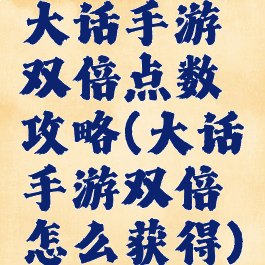 大话手游
双倍点数
攻略(大话
手游双倍
怎么获得)